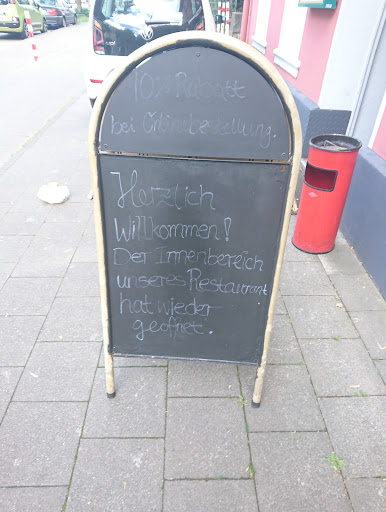 10% Rabatt
bei Onlinebestellung.
Herzlich
Willkommen!
Der Innenbereich
unseres Restaurant
hat wieder
geöffnet.